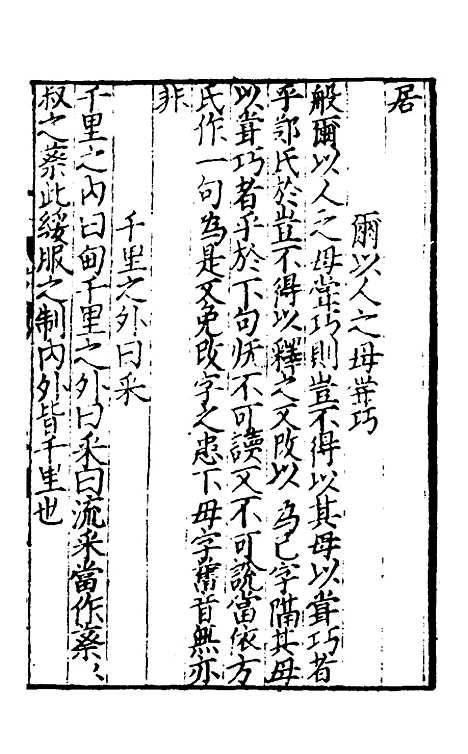 居
爾以人之母甞巧
般爾以人之母甞巧則豈不得以其母以甞巧者
乎鄭氏於豈不得以釋之又改以為已字隔其母
以甞巧者乎於下句旣不可讀又不可說當依方
氏作一句為是又免改字之患下母字舊音無亦
非
千里之外曰采
千里之內曰甸千里之外曰采曰流采當作蔡〻
叔之蔡此綏服之制內外皆千里也